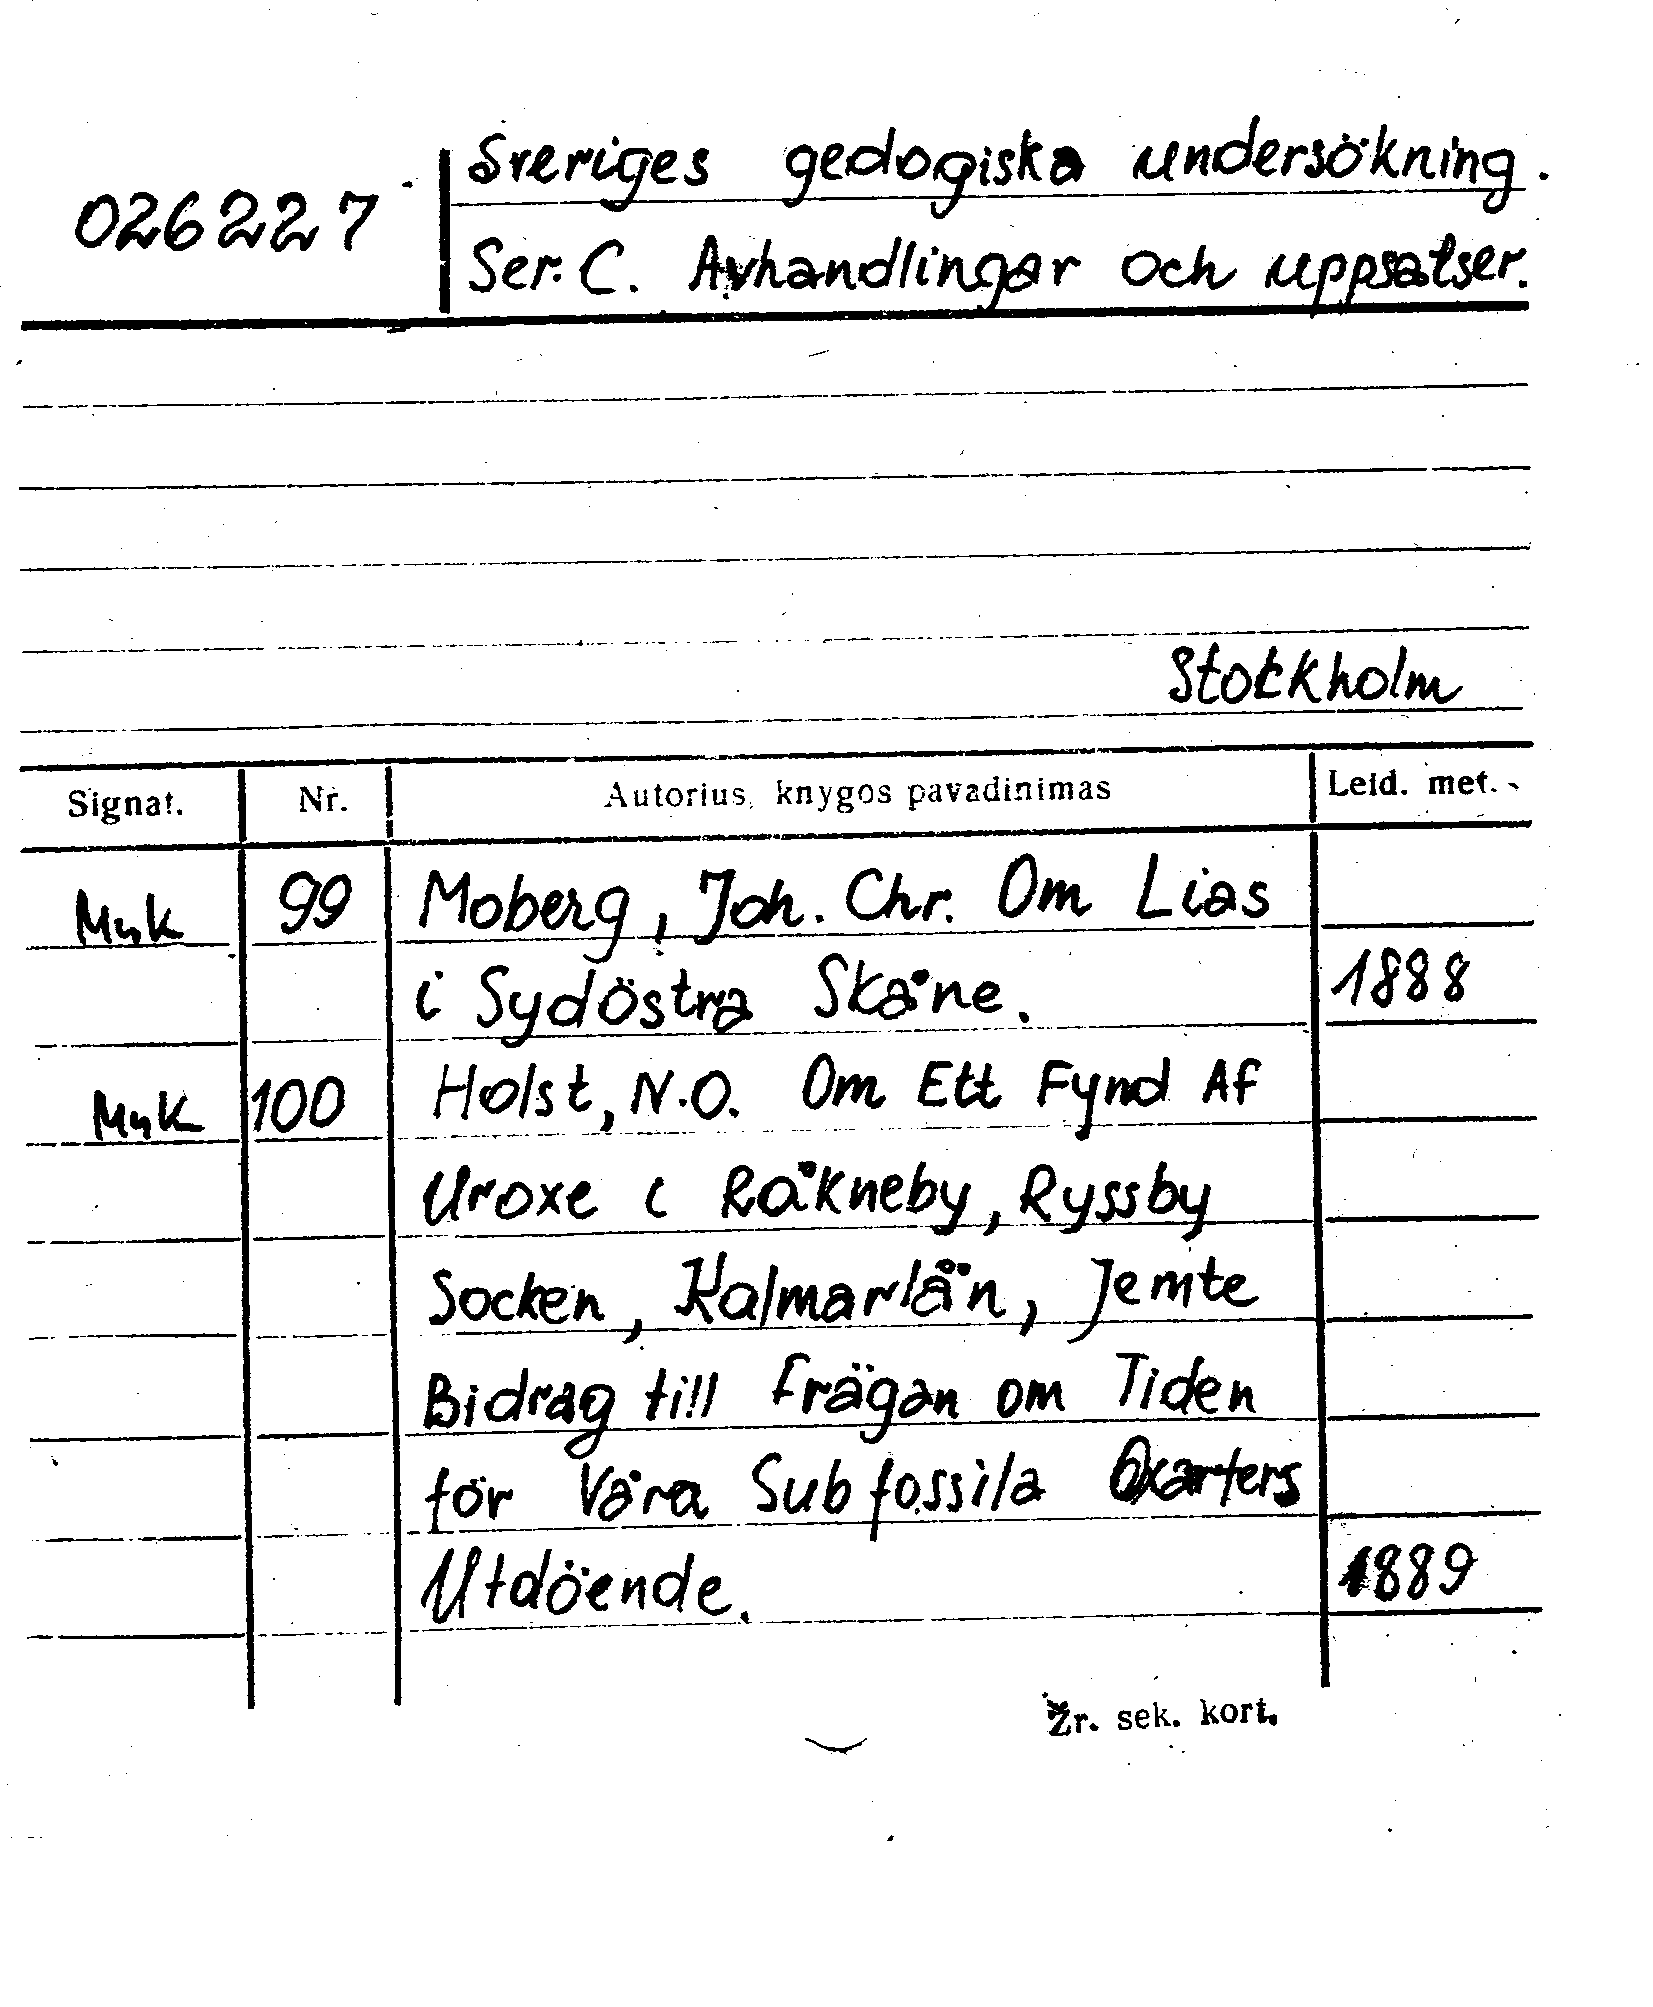 026227
Sveriges geologiska undersökning.
Ser. C. Avhandlingar och uppsatser.
Stockholm
Signat. Nr. Autorius, knygos pavadinimas Leid. met.
MnK 99 Moberg, Joh. Chr. Om Lias
i Sydöstra Skåne. 1888
MnK 100 Holst, N.O. Om Ett Fynd Af
Uroxe i Råkneby, Ryssby
Socken, Kalmarlän, Jemte
Bidrag till Frägan om Tiden
för Våra Subfossila Oxarters
Utdöende. 1889
Žr. sek. kort.